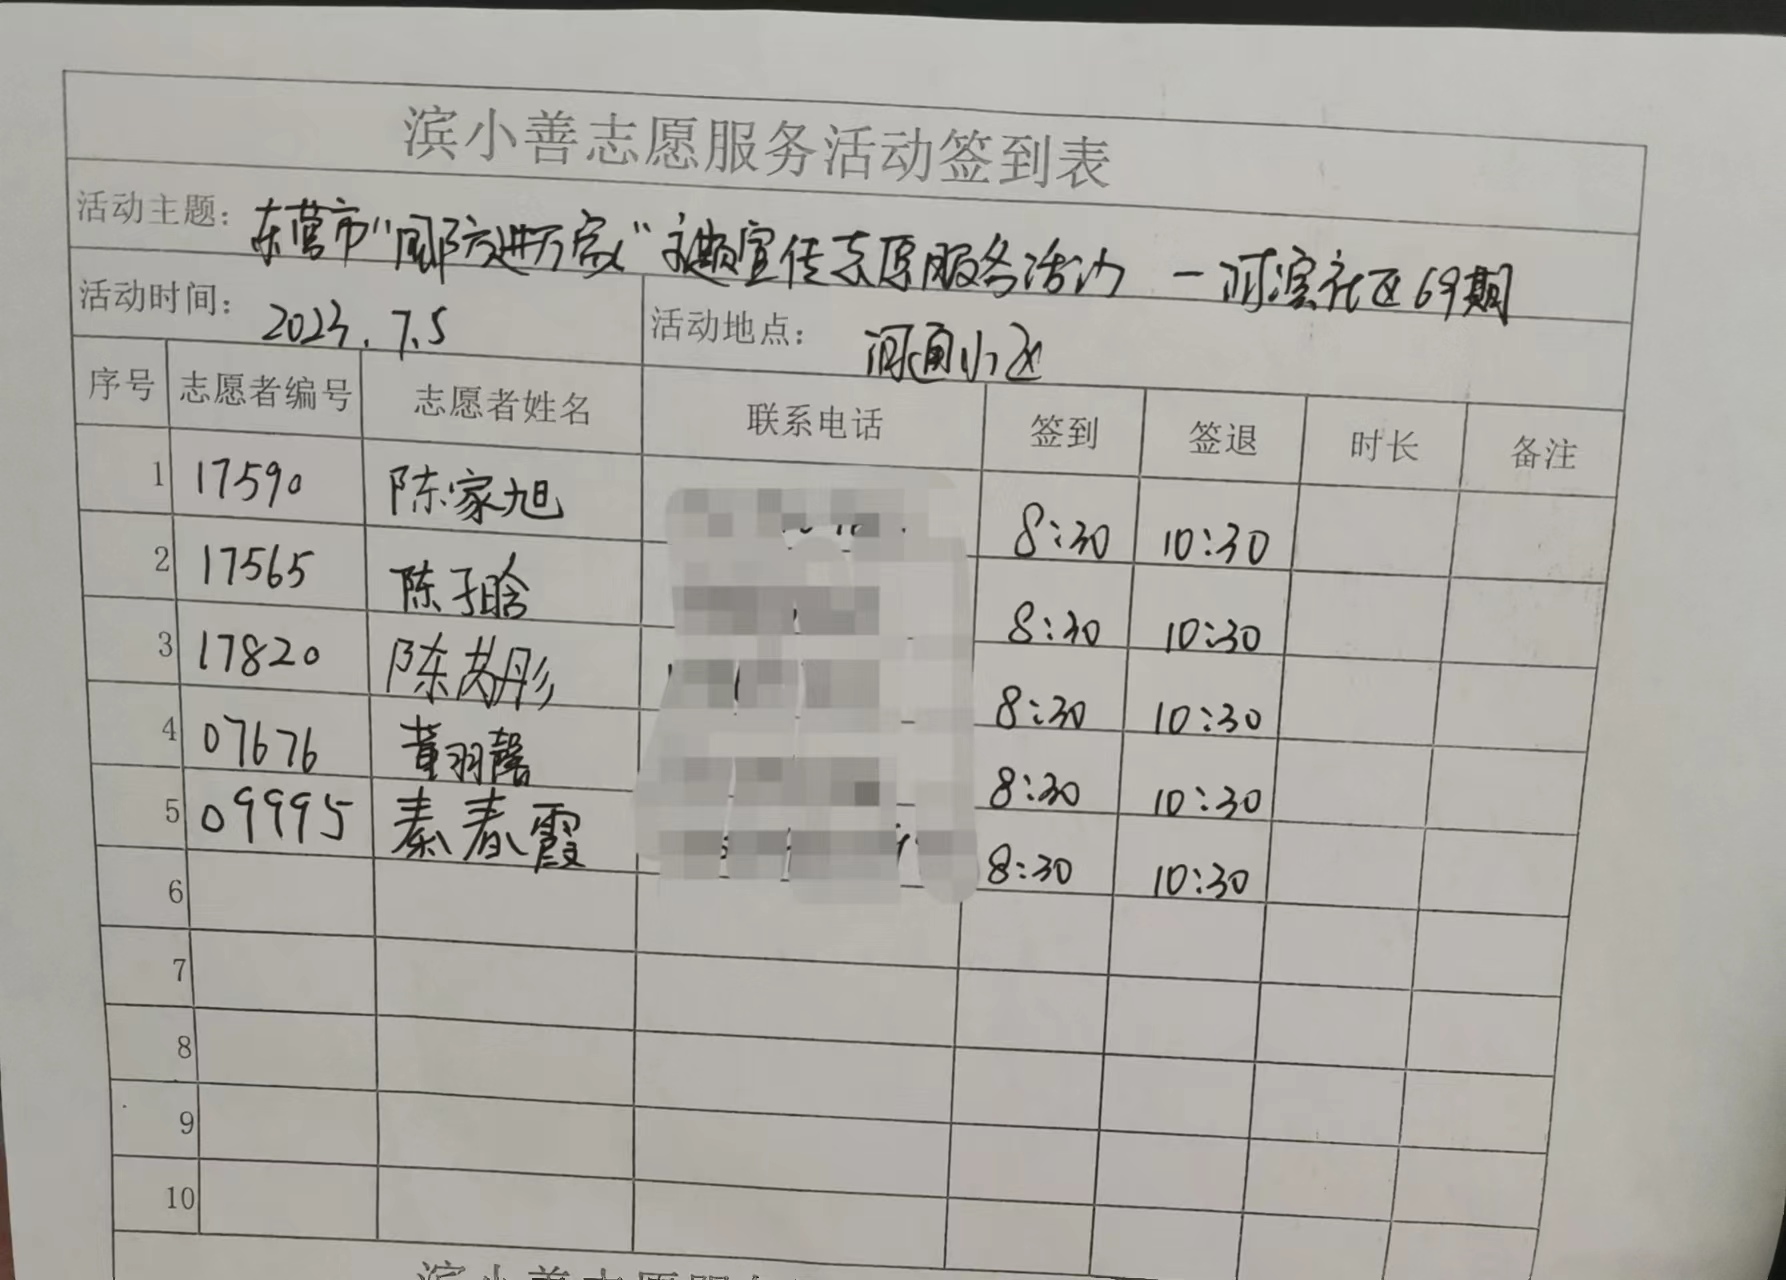 滨小善志愿服务活动签到表
活动主题：东营市“国防进万家”主题宣传志愿服务活动 一河滨社区69期
活动时间：2023.7.5 活动地点：河通小区
序号 志愿者编号 志愿者姓名 联系电话 签到 签退 时长 备注
1 17590 陈家旭 8:30 10:30
2 17565 陈子晗 8:30 10:30
3 17820 陈芮彤 8:30 10:30
4 07676 黄羽馨 8:30 10:30
5 09995 秦春霞 8:30 10:30
6
7
8
9
10
滨小善志愿服